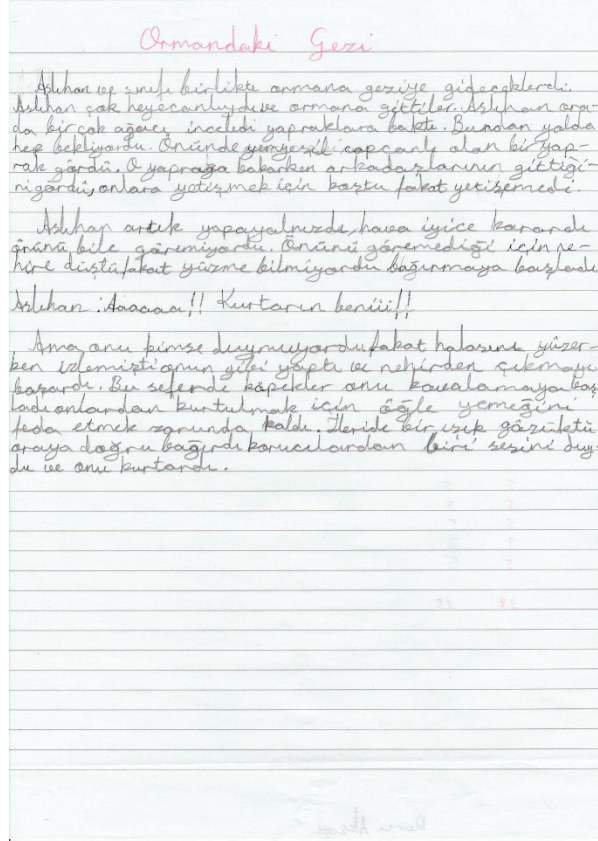 Ormandaki Gezi
Aslıhan ve sınıfı birlikte ormana geziye gideceklerdi.
Aslıhan çok heyecanlıydı ve ormana gittiler. Aslıhan ora-
da birçok ağacı inceledi yapraklara baktı. Bundan yolda
hep bekliyordu. Önünde yemyeşil capcanlı olan bir yap-
rak gördü. O yaprağa bakarken arkadaşlarının gittiği-
ni gördü, onlara yetişmek için koştu fakat yetişemedi.
Aslıhan artık yapayalnızdı, hava iyice karardı
önünü bile göremiyordu. Önünü göremediği için ne-
hire düştü fakat yüzme bilmiyordu bağırmaya başladı
Aslıhan : Aaaaaa!! Kurtarın beniii!!
Ama onu kimse duymuyordu fakat halasını yüzer-
ken izlemişti onun gibi yaptı ve nehirden çıkmayı
başardı. Bu seferdi köpekler onu kovalamaya baş
ladı onlardan kurtulmak için öğle yemeğini
feda etmek zorunda kaldı. İleride bir ışık gözüktü
oraya doğru bağırdı korucılardan biri sesini duy-
du ve onu kurtardı.